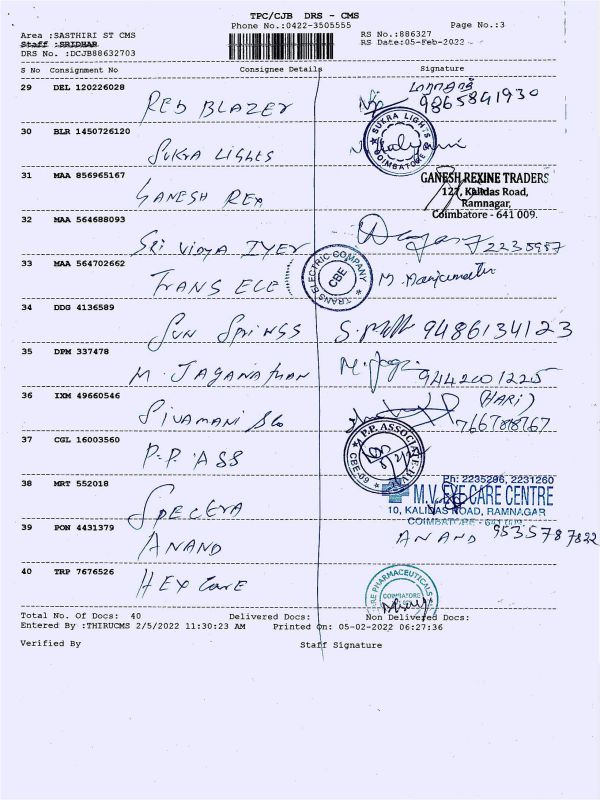 TPC/CJB DRS - CMS
Phone No.:0422-3505555 Page No.:3
Area :SASTHIRI ST CMS RS No.:886327
Staff :SRIDHAR RS Date:05-Feb-2022
DRS No. :DCJB88632703
S No Consignment No Consignee Details Signature
29 DEL 120226028 RED BLAZER 9865841930
30 BLR 1450726120 SUKRA LIGHTS SUKRA LIGHTS COIMBATORE
31 MAA 856965167 GANESH REX GANESH REXINE TRADERS
127, Kalidas Road,
Ramnagar,
Coimbatore - 641 009.
32 MAA 564688093 SRI VIDYA IYER
33 MAA 564702662 TRANS ELE TRANS ELECTRIC COMPANY CBE M. Manjunath
34 DDG 4136589 SUN SPINGS 9486134123
35 DPM 337478 M. JAGANATHAN 9442001225
36 IXM 49660546 SIVAMANI (HARI)
37 CGL 16003560 P.P. ASS P.P. ASSOCIATE CBE-09
38 MRT 552018 SPECTRA Ph: 2235206, 2231260
M.V. EYE CARE CENTRE
10, KALIDAS ROAD, RAMNAGAR
COIMBATORE - 641 009
39 PON 4431379 ANAND ANAND 9535787822
40 TRP 7676526 HEX CARE CARE PHARMACEUTICALS COIMBATORE
Total No. Of Docs: 40 Delivered Docs: Non Delivered Docs:
Entered By :THIRUCMS 2/5/2022 11:30:23 AM Printed On: 05-02-2022 06:27:36
Verified By Staff Signature